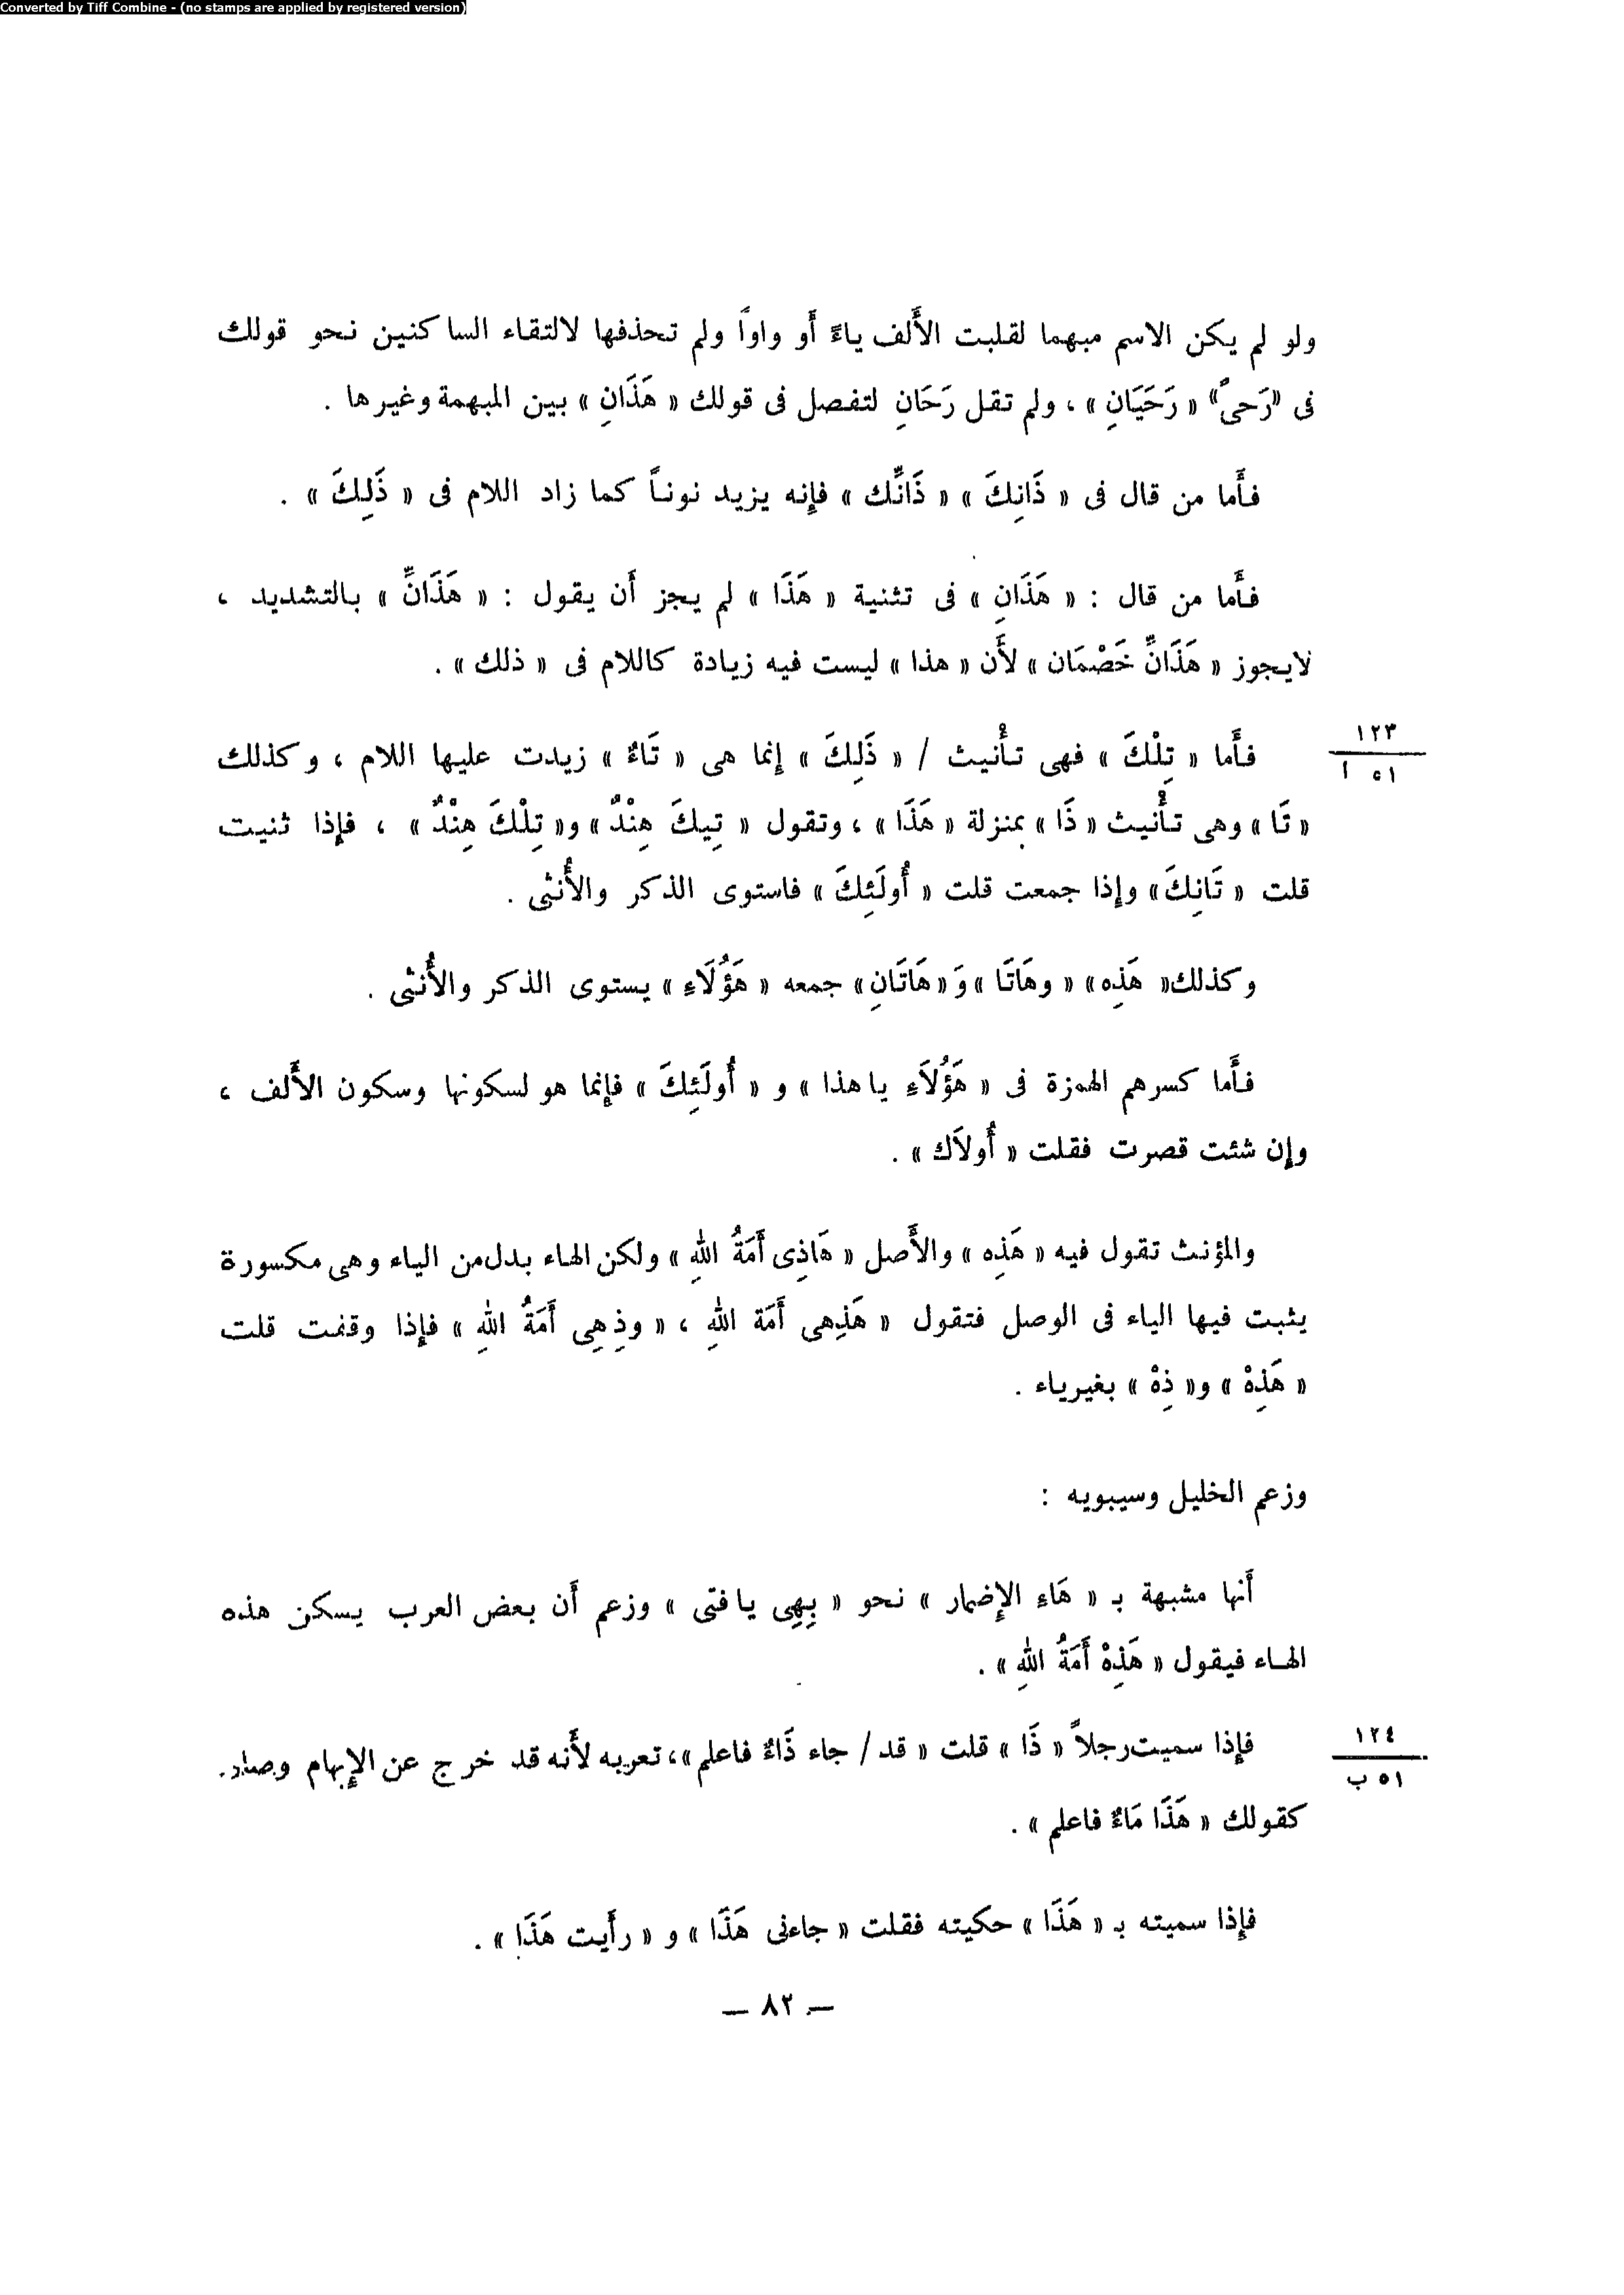 Converted by Tiff Combine - (no stamps are applied by registered version)
ولو لم يكن الاسم مبهما لقلبت الأَلف ياءً أَو واواً ولم تحذفها لالتقاء الساكنين نحو قولك
فى «رَحىً» « رَحَيَانِ » ، ولم تقل رَحَانِ لتفصل فى قولك « هَذَانِ » بين المبهمة وغيرها .
فأَما من قال فى « ذَانِكَ » « ذَانِّك » فإِنه يزيد نوناً كما زاد اللام فى « ذَلِكَ » .
فأَما من قال : « هَذَانِ » فى تثنية « هَذَا » لم يجز أَن يقول : « هَذَانِّ » بالتشديد ،
لايجوز « هَذَانِّ خَصْمَان » لأَن « هذا » ليست فيه زيادة كاللام فى « ذلك » .
١٢٣
٥١ ا
فأَما « تِلْكَ » فهى تأْنيث / « ذَلِكَ » إِنما هى « تَاءٌ » زيدت عليها اللام ، وكذلك
« تَا » وهى تأْنيث « ذَا » بمنزلة « هَذَا » ، وتقول « تِيكَ هِنْدٌ » و« تِلْكَ هِنْدٌ » ، فإِذا ثنيت
قلت « تَانِكَ » وإِذا جمعت قلت « أُولَئِكَ » فاستوى الذكر والأُنثى .
وكذلك« هَذِه » « وهَاتَا » وَ« هَاتَانِ » جمعه « هَؤُلَاءِ » يستوى الذكر والأُنثى .
فأَما كسرهم الهمزة فى « هَؤُلاَءِ ياهذا » و « أُولَئِكَ » فإِنما هو لسكونها وسكون الأَلف ،
وإِن شئت قصرت فقلت « أُولاَك » .
والمؤنث تقول فيه « هَذِه » والأَصل « هَاذِى أَمَةُ اللهِ » ولكن الهاء بدل من الياء وهى مكسورة
يثبت فيها الياء فى الوصل فتقول « هَذِهى أَمَة اللهِ ، « وذِهِى أَمَةُ اللهِ » فإِذا وقفت قلت
« هَذِهْ » و« ذِهْ » بغيرياء .
وزعم الخليل وسيبويه :
أَنها مشبهة بـ « هَاءِ الإِضمار » نحو « بِهِى يافتى » وزعم أَن بعض العرب يسكن هذه
الهاء فيقول « هَذِهْ أَمَةُ اللهِ » .
١٢٤
٥١ ب
فإِذا سميت رجلاً « ذَا » قلت « قد / جاء ذَاءٌ فاعلم » ، تعربه لأَنه قد خرج عن الإِبهام وصار
كقولك « هَذَا مَاءٌ فاعلم » .
فإِذا سميته بـ « هَذَا » حكيته فقلت « جاءنى هَذَا » و « رأَيت هَذَا » .
— ٨٢ —